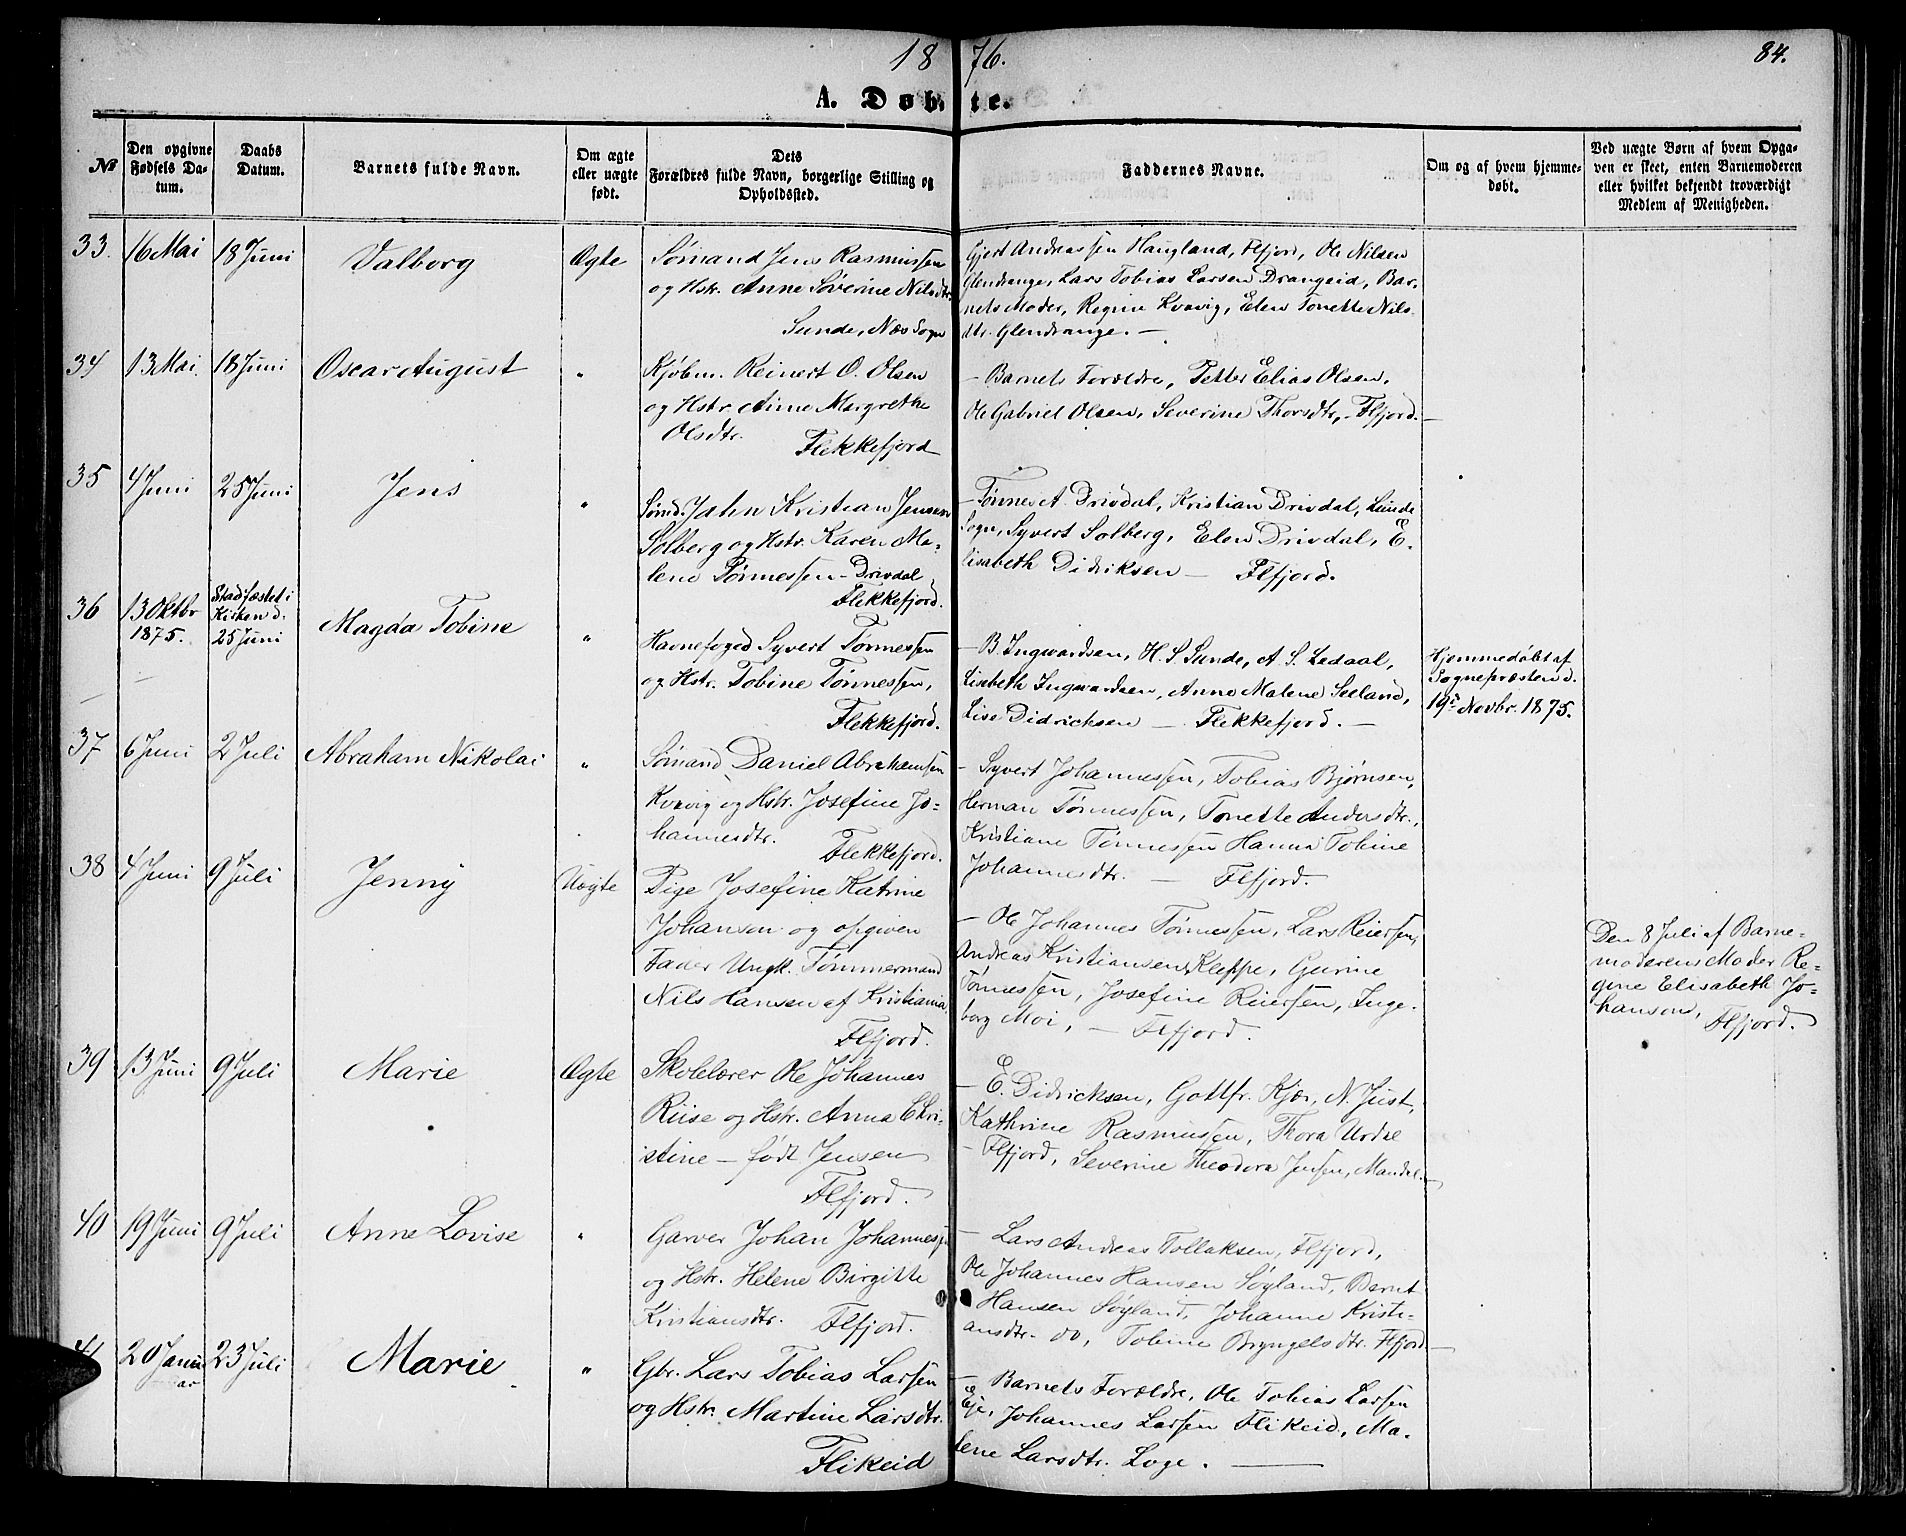 1876.
84.
A. Døbte.
№
Den opgivne Fødsels Datum.
Daabs Datum.
Barnets fulde Navn.
Om ægte eller uægte født.
Dets Forældres fulde Navn, borgerlige Stilling og Opholdssted.
Faddernes Navne.
Om og af hvem hjemmedøbt.
Ved uægte Børn af hvem Opgaven er skeet, enten Barnemoderen eller hvilket bekjendt troværdigt Medlem af Menigheden.
33. 16 Mai 18 Juni Valborg Ægte
Sømand Jens Rasmussen
og Hstr. Anne Søverine Nilsdtr.
Sunde, Næs Sogn
Gjert Andreassen Haugland, Flfjord, Ole Nilsen
Glendrange, Lars Tobias Larsen Drangeid, Bar-
nets Moder, Regine Kvavig, Elen Tonette Nils-
dtr. Glendrange. —
34 13 Mai. 18 Juni Oscar August "
Kjøbm. Reinert O. Olsen
og Hstr. Anne Margrethe
Olsdtr. Flekkefjord
— Barnets Forældre, Petter Elias Olsen,
Ole Gabriel Olsen, Severine Thorsdtr, - Flfjord. —
35 4 Juni 25 Juni Jens "
Sømd. Jahn Kristian Jensen
Solberg og Hstr. Karen Ma-
lene Tønnessen - Drivdal
Flekkefjord.
— Tønnes A. Drivdal, Kristian Drivdal, Lunde
Sogn, Syvert Solberg, Elen Drivdal, E-
lisabeth Didriksen — Flfjord.
36 13 Oktbr 1875. Stadfæstet i Kirken d. 25 Juni Magda Tobine "
Havnefoged Syvert Tønnessen
og Hstr. Tobine Tønnessen,
Flekkefjord.
— B. Ingwardsen, H. S. Sunde, A. S. Ledaal,
Lisabeth Ingwardsen, Anne Malene Seeland,
Lise Didricksen — Flekkefjord. —
Hjemmedøbt af
Sognepræsten d.
19de Novbr. 1875.
37 6 Juni 2 Juli Abraham Nikolai "
Sømand Daniel Abrahamsen
Kvavig og Hstr. Josefine Jo-
hannesdtr. Flekkefjord.
— Syvert Johannessen, Tobias Bjørnsen,
Herman Tønnessen, Tonette Andersdtr.,
Kristiane Tønnessen Hanna Tobine
Johannesdtr. — Flfjord.
38 4 Juni 9 Juli Jenny Uægte
Pige Josefine Katrine
Johanson og opgiven
Fader Ungk. Tømmermand
Nils Hansen af Kristiania
Flfjord.
— Ole Johannes Tønnessen, Lars Reiersen,
Andreas Kristiansen Kleppe, Gurine
Tønnessen, Josefine Reiersen, Inge-
borg Moi, — Flfjord.
Den 8 Juli af Barne-
moderens Moder Re-
gine Elisabeth Jo-
hanson, Flfjord.
39 13 Juni 9 Juli Marie Ægte
Skolelærer Ole Johannes
Riise og Hstr. Anna Chri-
stine — født Jensen
Flfjord.
— E. Didricksen, Gottfr. Kjær, N. Just,
Kathrine Rasmussen, Thora Urdal
— Flfjord, Severine Theodora Jensen, Mandal. —
40 19 Juni 9 Juli Anne Lovise "
Garver Johan Johannessen
og Hstr. Helene Birgitte
Kristiansdtr. Flfjord.
— Lars Andreas Tollaksen, Flfjord,
Ole Johannes Hansen Søyland, Bernt
Hansen Søyland, Johanne Kristi-
ansdtr. do, Tobine Bryngelsdtr. Flfjord —
41 20 Januar 23 Juli Marie "
Gbr. Lars Tobias Larsen
og Hstr. Martine Larsdtr.
Flikeid
— Barnets Forældre, Ole Tobias Larsen
Eje, Johannes Larsen Flikeid, Ma-
lene Larsdtr. Loge. —